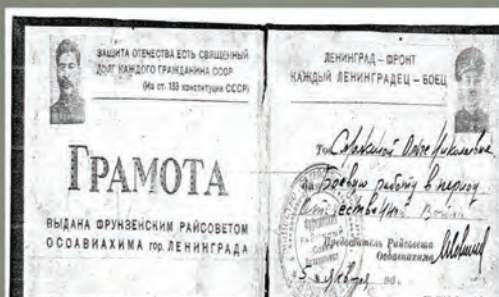 ЗАЩИТА ОТЕЧЕСТВА ЕСТЬ СВЯЩЕННЫЙ
ДОЛГ КАЖДОГО ГРАЖДАНИНА СССР
(Из ст. 133 конституции СССР)
ГРАМОТА
ВЫДАНА ФРУНЗЕНСКИМ РАЙСОВЕТОМ
ОСОАВИАХИМА гор. ЛЕНИНГРАДА
ЛЕНИНГРАД — ФРОНТ
КАЖДЫЙ ЛЕНИНГРАДЕЦ — БОЕЦ
Тов. Николаевне
за Боевую работу в период
Отечественной Войны
Председатель Райсовета
Осоавиахима